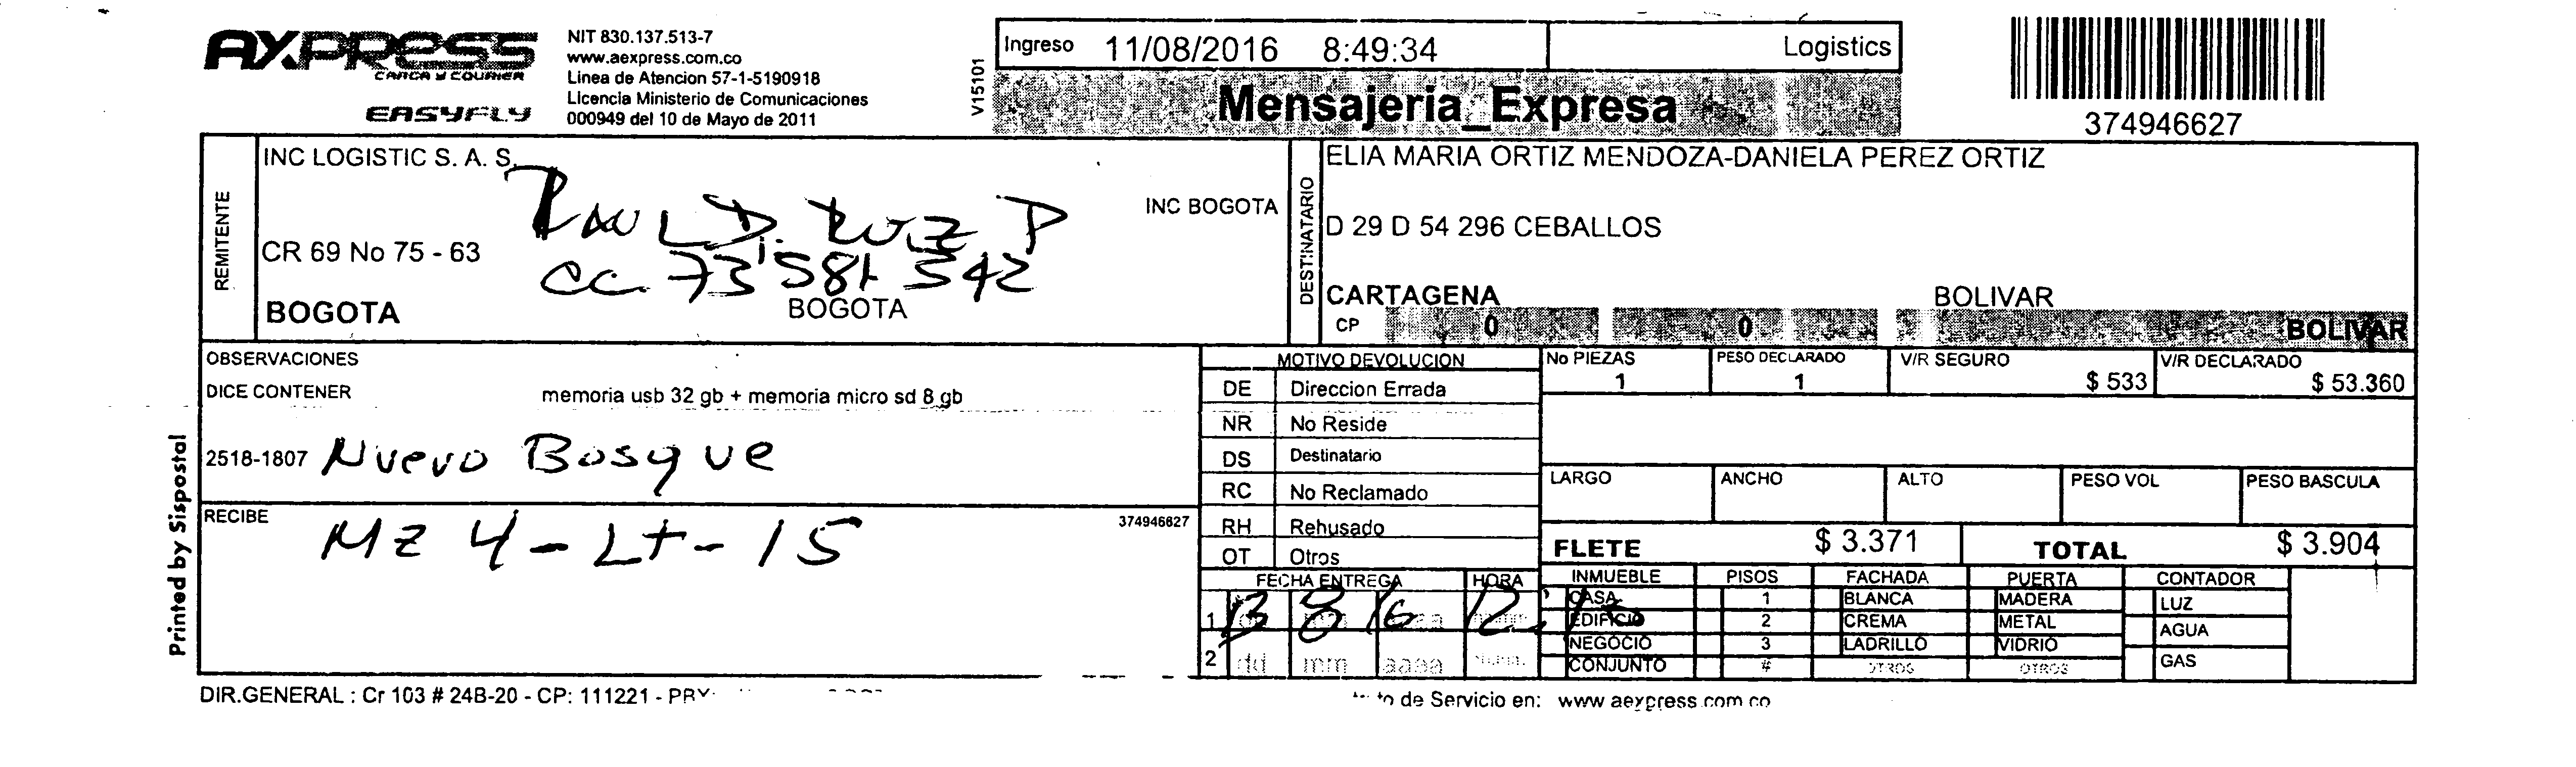 AXPRESS
CARGA Y COURIER
EASYFLY
NIT 830.137.513-7
www.aexpress.com.co
Linea de Atencion 57-1-5190918
Licencia Ministerio de Comunicaciones
000949 del 10 de Mayo de 2011
V15101
Ingreso 11/08/2016 8:49:34 Logistics
Mensajeria_Expresa
374946627
REMITENTE
INC LOGISTIC S. A. S.
INC BOGOTA
CR 69 No 75 - 63
D. Ruiz P
cc. 73
542
BOGOTA BOGOTA
DESTINATARIO
ELIA MARIA ORTIZ MENDOZA-DANIELA PEREZ ORTIZ
D 29 D 54 296 CEBALLOS
CARTAGENA BOLIVAR
CP 0 0 BOLIVAR
OBSERVACIONES
DICE CONTENER memoria usb 32 gb + memoria micro sd 8 gb
2518-1807 Nuevo Bosque
RECIBE 374946627
Mz 4 - Lt - 15
MOTIVO DEVOLUCION
DE Direccion Errada
NR No Reside
DS Destinatario
RC No Reclamado
RH Rehusado
OT Otros
FECHA ENTREGA HORA
1 13 8 16
2 dd mm aaaa
No PIEZAS PESO DECLARADO V/R SEGURO V/R DECLARADO
1 1 $ 533 $ 53.360
LARGO ANCHO ALTO PESO VOL PESO BASCULA
FLETE $ 3.371 TOTAL $ 3.904
INMUEBLE PISOS FACHADA PUERTA CONTADOR
CASA 1 BLANCA MADERA LUZ
EDIFICIO 2 CREMA METAL AGUA
NEGOCIO 3 LADRILLO VIDRIO GAS
CONJUNTO # OTROS OTROS
Printed by Sispostal
DIR.GENERAL : Cr 103 # 24B-20 - CP: 111221 -
de Servicio en: www aexpress.com.co